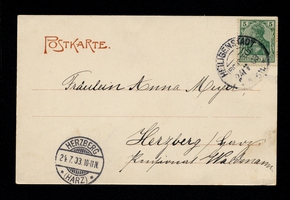 POSTKARTE.
5 5
HEILIGENSTADT
Fräulein Anna Meyer,
Herzberg / Harz
Pensionat Waldmann
HERZBERG
24.7.03.10-11N.
* (HARZ) *